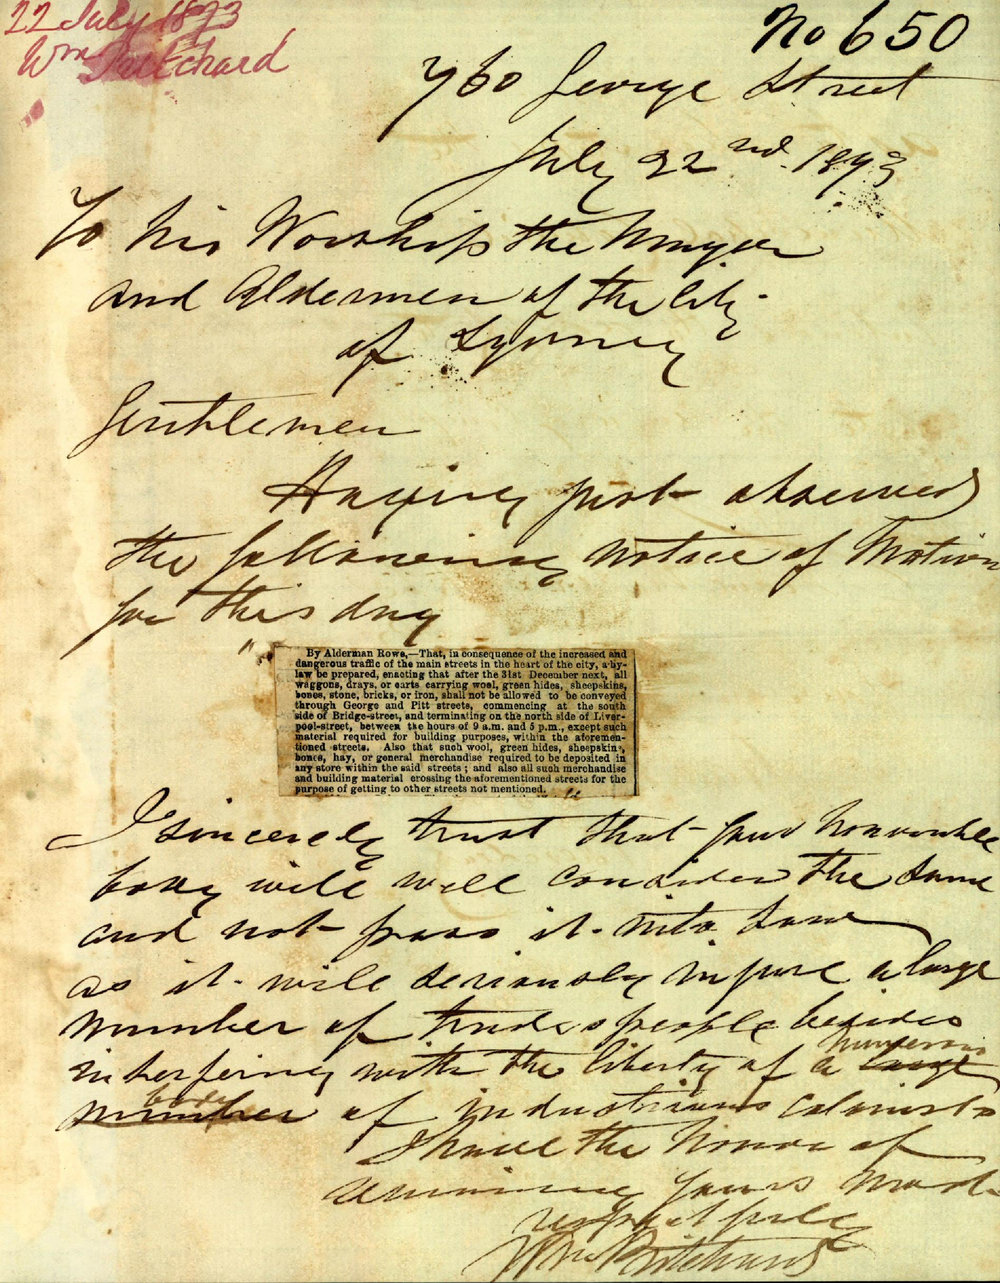 22 July 1893
Wm Pritchard
No 650
760 George Street
July 22nd. 1893
To his Worship the Mayor
and Aldermen of the City
of Sydney
Gentlemen
Having just observed
the following notice of Motion
for this day
"
By Alderman Rowe,—That, in consequence of the increased and
dangerous traffic of the main streets in the heart of the city, a by-
law be prepared, enacting that after the 31st December next, all
waggons, drays, or carts carrying wool, green hides, sheepskins,
bones, stone, bricks, or iron, shall not be allowed to be conveyed
through George and Pitt streets, commencing at the south
side of Bridge-street, and terminating on the north side of Liver-
pool-street, between the hours of 9 a.m. and 5 p.m., except such
material required for building purposes, within the aforemen-
tioned streets. Also that such wool, green hides, sheepskins,
bones, hay, or general merchandise required to be deposited in
any store within the said streets; and also all such merchandise
and building material crossing the aforementioned streets for the
purpose of getting to other streets not mentioned.
"
I sincerely trust that your honorable
body will well consider the same
and not pass it into Law
as it will seriously injure a large
number of tradespeople besides
interfering with the liberty of a large numerous
number body of industrious colonists
I have the honor of
remaining yours most
respectfully
Wm Pritchard